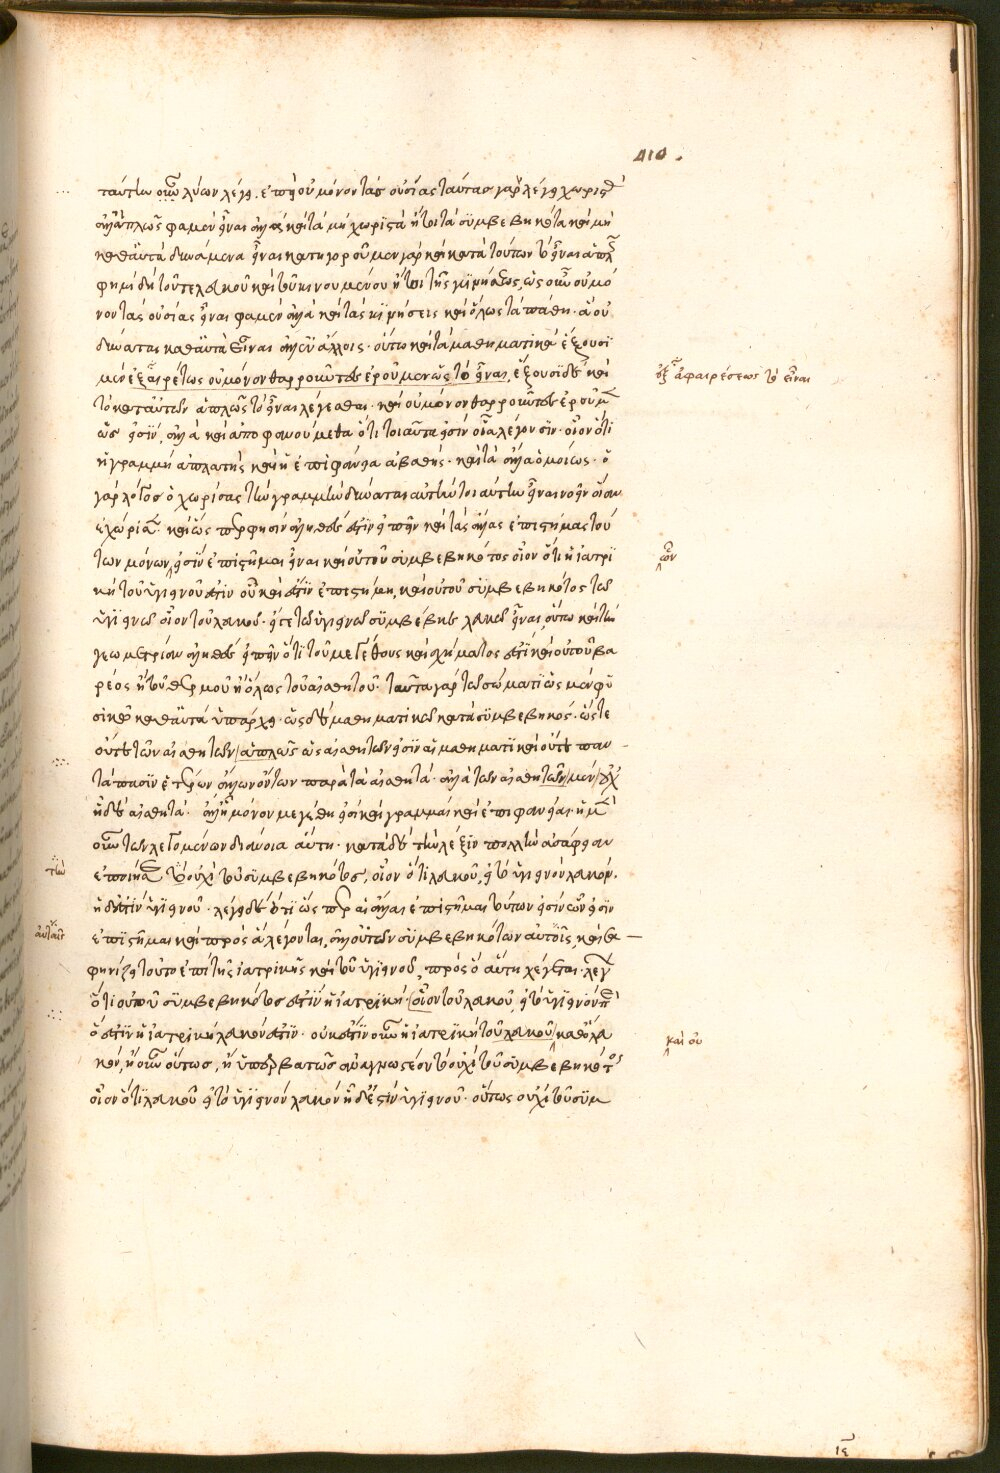 410.
ταύτην οὖν λύων λέγει. ἐπεὶ οὐ μόνον τὰς οὐσίας ταύτας γὰρ λέγει χωριστὰ
ἀλλ' ἁπλῶς φαμὲν εἶναι ἀλλὰ καὶ τὰ μὴ χωριστὰ ἤτοι τὰ συμβεβηκότα καὶ μὴ
καθ' αὑτὰ δυνάμενα εἶναι κατηγοροῦμεν γὰρ καὶ κατὰ τούτων τὸ εἶναι ἁπλῶς
φημὶ δὴ τοῦ τελείου καὶ τοῦ κινουμένου ἤτοι τῆς κινήσεως, ὡς οὖν οὐ μό
νον τὰς οὐσίας εἶναι φαμὲν ἀλλὰ καὶ τὰς κινήσεις καὶ ὅλως τὰ πάθη· ἃ οὐ
δύναται καθ' αὑτὰ εἶναι ἀλλ' ἐν ἄλλοις· οὕτω καὶ τὰ μαθηματικὰ ἕξουσι
μὲν ἐξαιρέτως οὐ μόνον θαρροῦντες ἐροῦμεν ὡς τὸ εἶναι, ἕξουσι δὲ καὶ
τὸ κατ' αὐτῶν ἁπλῶς τὸ εἶναι λέγεσθαι· καὶ οὐ μόνον θαρροῦντες ἐροῦμεν
ὡς εἰσίν, ἀλλὰ καὶ ἀποφανούμεθα ὅτι τοιαῦτα εἰσὶν οἷα λέγουσιν· οἷον ὅτι
ἡ γραμμὴ ἀπλατὴς καὶ ἡ ἐπιφάνεια ἀβαθής· καὶ τὰ ἄλλα ὁμοίως· ὁ
γὰρ λόγος ὁ χωρίσας τὴν γραμμὴν δύναται αὐτὴν τοιαύτην εἶναι νοεῖν οἵαν
ἐχώρισε· καὶ ὥς περ φησὶν ἀληθές ἐστιν εἰπεῖν καὶ τὰς ἄλλας ἐπιστήμας τού
των μόνων, εἰσὶν ἐπιστῆμαι εἶναι καὶ οὐ τοῦ συμβεβηκότος οἷον ὅτι ἡ ἰατρι
κὴ τοῦ ὑγιεινοῦ ἐστιν οὗ καὶ ἔστιν ἐπιστήμη, καὶ οὐ τοῦ συμβεβηκότος τῷ
ὑγιεινῷ οἷον τοῦ λευκοῦ· εἴτε τῷ ὑγιεινῷ συμβέβηκε λευκῷ εἶναι, οὕτω καὶ τὴν
γεωμετρίαν ἀληθὲς εἰπεῖν ὅτι τοῦ μεγέθους καὶ σχήματος ἐστὶ καὶ οὐ τοῦ βα
ρέος ἢ τοῦ θερμοῦ ἢ ὅλως τοῦ αἰσθητοῦ· ταῦτα γὰρ τῷ σώματι ὡς μὲν φυ
σικῷ καθ' αὑτὰ ὑπάρχει· ὡς δὲ μαθηματικῷ κατὰ συμβεβηκός· ὥστε
οὔτε τῶν αἰσθητῶν ἁπλῶς ὡς αἰσθητῶν εἰσὶν αἱ μαθηματικαὶ οὔτε παν
τάπασιν ἑτέρων ἄλλων ὄντων παρὰ τὰ αἰσθητά· ἀλλὰ τῶν αἰσθητῶν μὲν οὐχ
ᾗ δὲ αἰσθητά· ἀλλ' ᾗ μόνον μεγέθη εἰσὶ καὶ γραμμαὶ καὶ ἐπιφάνειαι· ἡ μὲν
οὖν τῶν λεγομένων διάνοια αὕτη· κατὰ δὲ τὴν λέξιν πολλὴν ἀσάφειαν
ἐποίησε τὸ οὐχὶ τοῦ συμβεβηκότος, οἷον ὅτι λευκοῦ, εἰ τὸ ὑγιεινὸν λευκόν.
ἡ δ' ἔστιν ὑγιεινοῦ· λέγει δὲ ὅτι ὥς περ αἱ ἄλλαι ἐπιστῆμαι τούτων εἰσὶν ὧν εἰσὶν
ἐπιστῆμαι καὶ πρὸς ἃ λέγονται, ἀλλ' οὐ τῶν συμβεβηκότων αὐτοῖς, καὶ σα
φηνίζει τοῦτο ἐπὶ τῆς ἰατρικῆς καὶ τοῦ ὑγιεινοῦ, πρὸς ὃ αὕτη λέγεται· λέγει
ὅτι οὐ τοῦ συμβεβηκότος ἐστὶν ἡ ἰατρική· οἷον τοῦ λευκοῦ, εἰ τὸ ὑγιεινὸν περὶ
ὅ ἐστιν ἡ ἰατρικὴ λευκόν ἐστιν· οὐκ ἔστιν οὖν ἡ ἰατρικὴ τοῦ λευκοῦ καθὸ λευ
κόν, ἢ οὖν οὕτως, ἢ ὑπερβατῶς ἀναγνωστέον τὸ οὐχὶ τοῦ συμβεβηκότος
οἷον ὅτι λευκοῦ εἰ τὸ ὑγιεινὸν λευκὸν ἡ δ' ἔστιν ὑγιεινοῦ· οὕτως οὐχὶ τοῦ συμ
ἐξ ἀφαιρέσεως τὸ εἶναι
ὧν
τὴν
καὶ οὐ
ιε